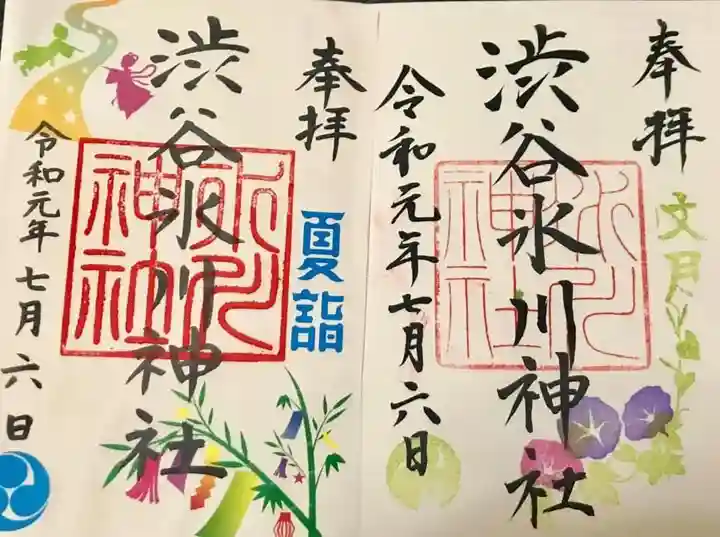 奉拝
文月
渋谷氷川神社
氷川
神社
令和元年七月六日
奉拝
夏詣
渋谷氷川神社
氷川
神社
令和元年七月六日